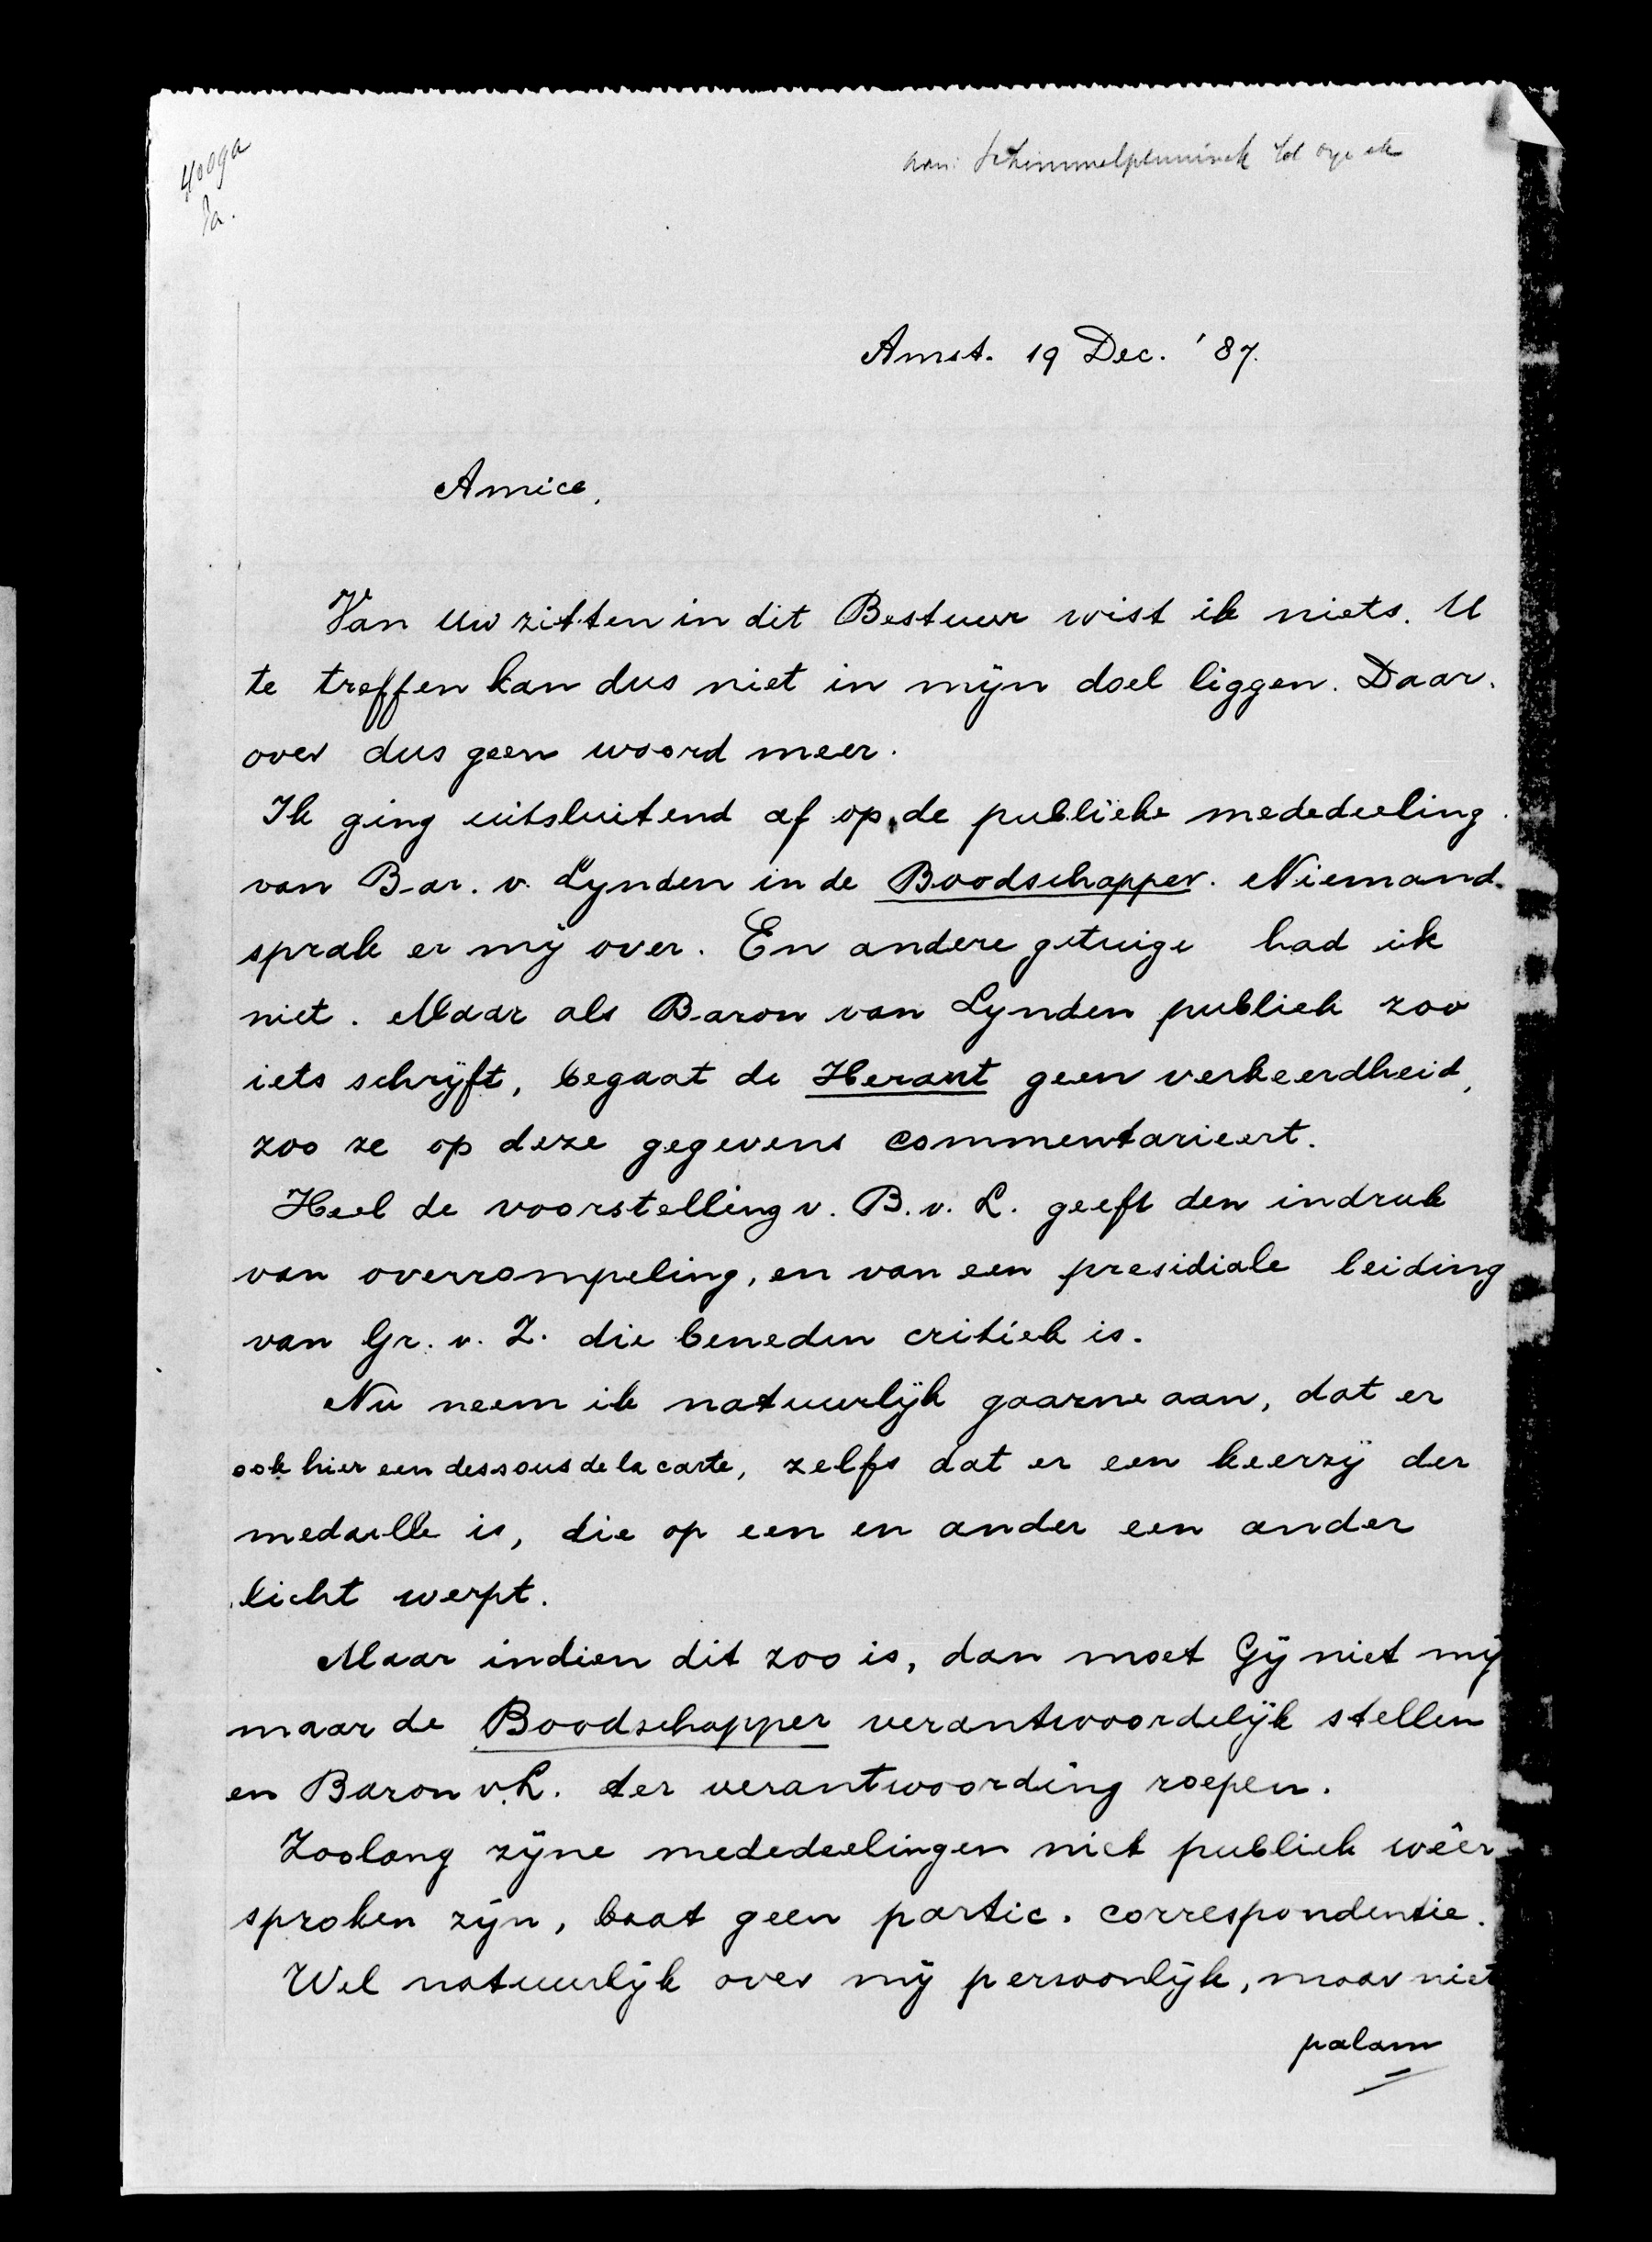 4009a
Ja.
aan: Schimmelpenninck tot Oye
Amst. 19 Dec. '87.
Amice,
Van Uw zitten in dit Bestuur wist ik niets. U
te treffen kan dus niet in mijn doel liggen. Daar-
over dus geen woord meer.
Ik ging uitsluitend af op de publieke mededeeling
van Bar. v. Lynden in de Boodschapper. Niemand
sprak er mij over. En andere getuige had ik
niet. Maar als Baron van Lynden publiek zoo
iets schrijft, begaat de Heraut geen verkeerdheid,
zoo ze op deze gegevens commentarieert.
Heel de voorstelling v. B. v. L. geeft den indruk
van overrompeling, en van een presidiale leiding
van Gr. v. Z. die beneden critiek is.
Nu neem ik natuurlijk gaarne aan, dat er
ook hier een dessous de la carte, zelfs dat er een keerzij der
medaille is, die op een en ander een ander
licht werpt.
Maar indien dit zoo is, dan moet Gij niet mij
maar de Boodschapper verantwoordelijk stellen
en Baron v. L. ter verantwoording roepen.
Zoolang zijne mededeelingen niet publiek wêer-
sproken zijn, baat geen partic. correspondentie.
Wel natuurlijk over mij persoonlijk, maar niet
palam